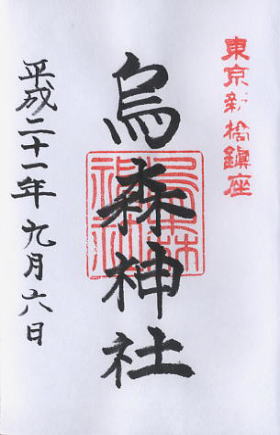 東京新橋鎮座
烏森神社
平成二十一年九月六日
烏森神社